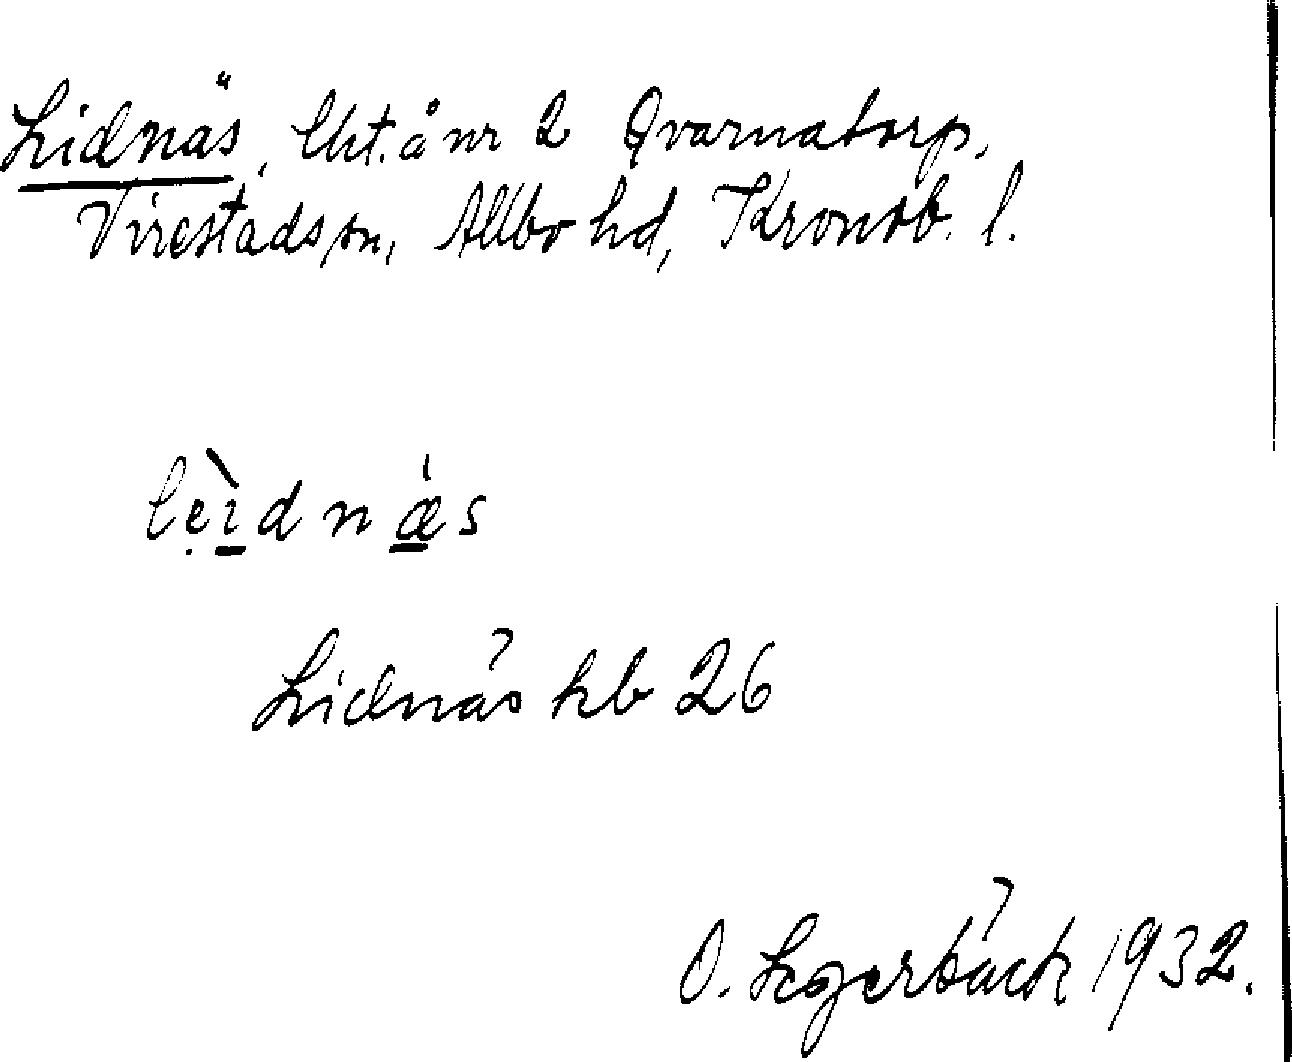 Lidnäs, lht. å nr 2 Qvarnatorp,
Virestads sn, Allbo hd, Kronob. l.
lẹìdnæ̀s
Lidnäs kb 26
O. Legerbäck 1932.